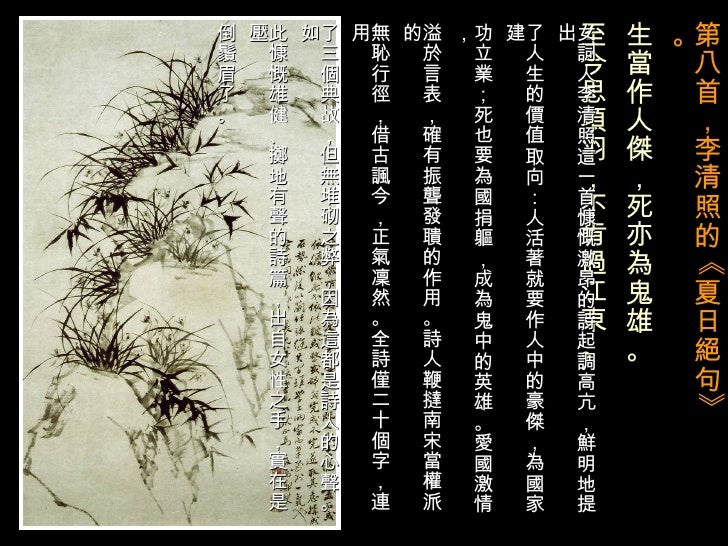 第八首，李清照的《夏日絕句》
。
生當作人傑，死亦為鬼雄。
至今思項羽，不肯過江東
女詞人李清照這一首慷慨激昂的詩起調高亢，鮮明地提
出
了人生的價值取向：人活著就要作人中的豪傑，為國家
建
功立業；死也要為國捐軀，成為鬼中的英雄。愛國激情
，
溢於言表，確有振聾發聵的作用。詩人鞭撻南宋當權派
的
無恥行徑，借古諷今，正氣凜然。全詩僅二十個字，連
用
了三個典故，但無堆砌之弊，因為這都是詩人的心聲。
如
此慷慨雄健、擲地有聲的詩篇，出自女性之手，實在是
壓
倒鬚眉了。